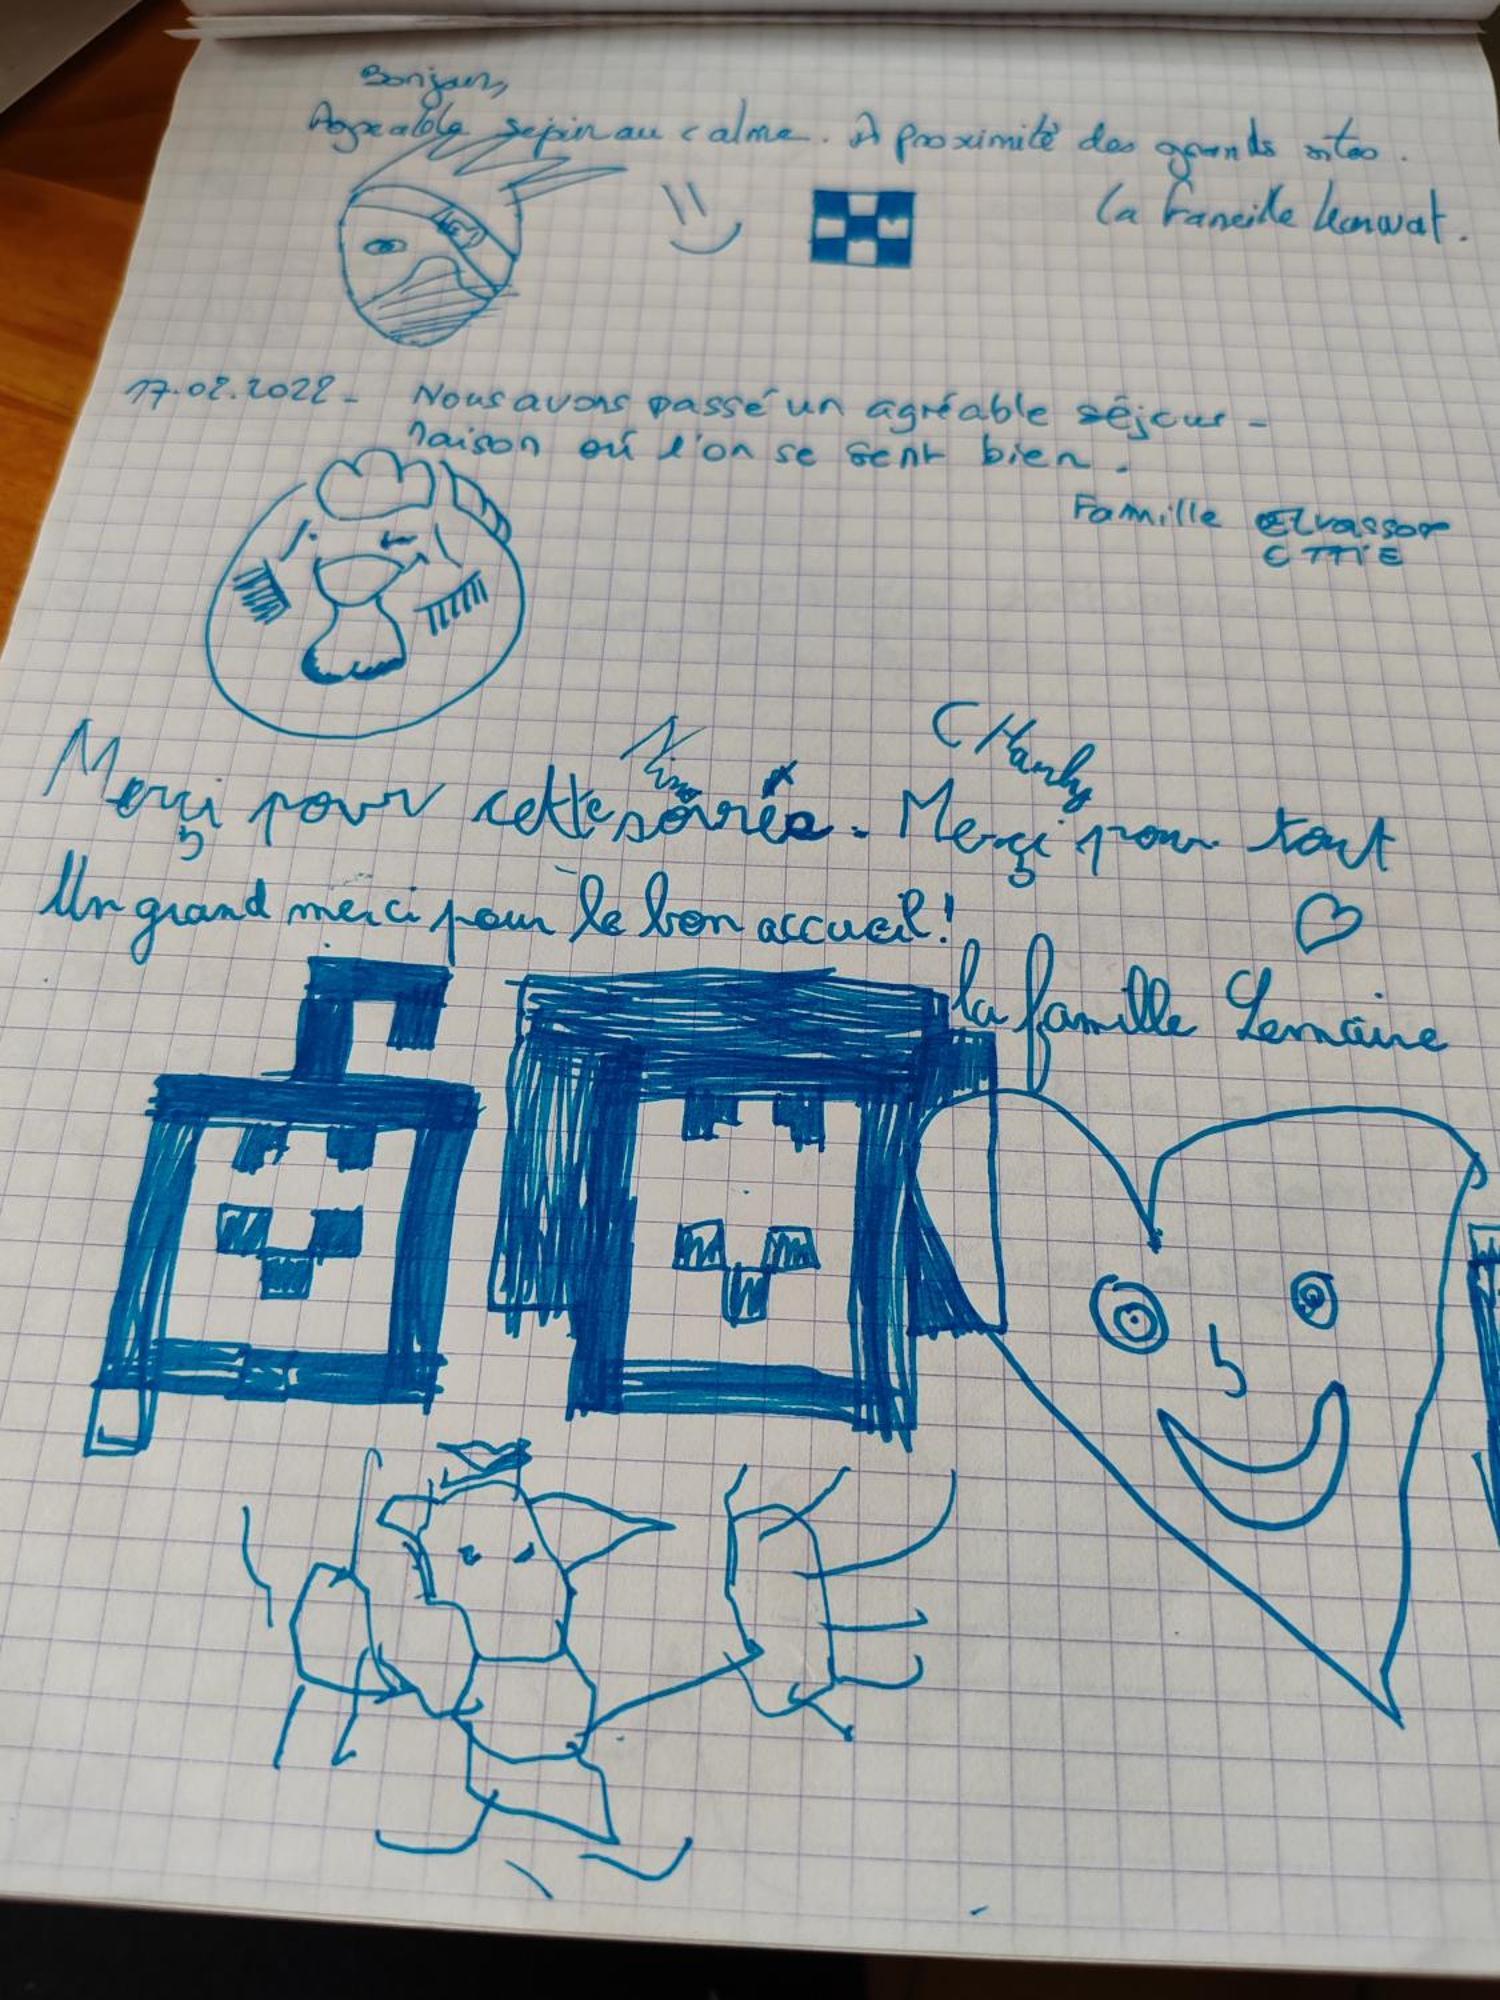 Bonjour,
Agreable sejour au calme. A proximité des grands sites.
La famille
17.02.2022 - Nous avons passé un agréable séjour -
Maison où l'on se sent bien.
Famille
Nino
CHarly
Merçi pour cette soirée. Merçi pour tout
Un grand merci pour le bon accueil!
la famille Lemaire